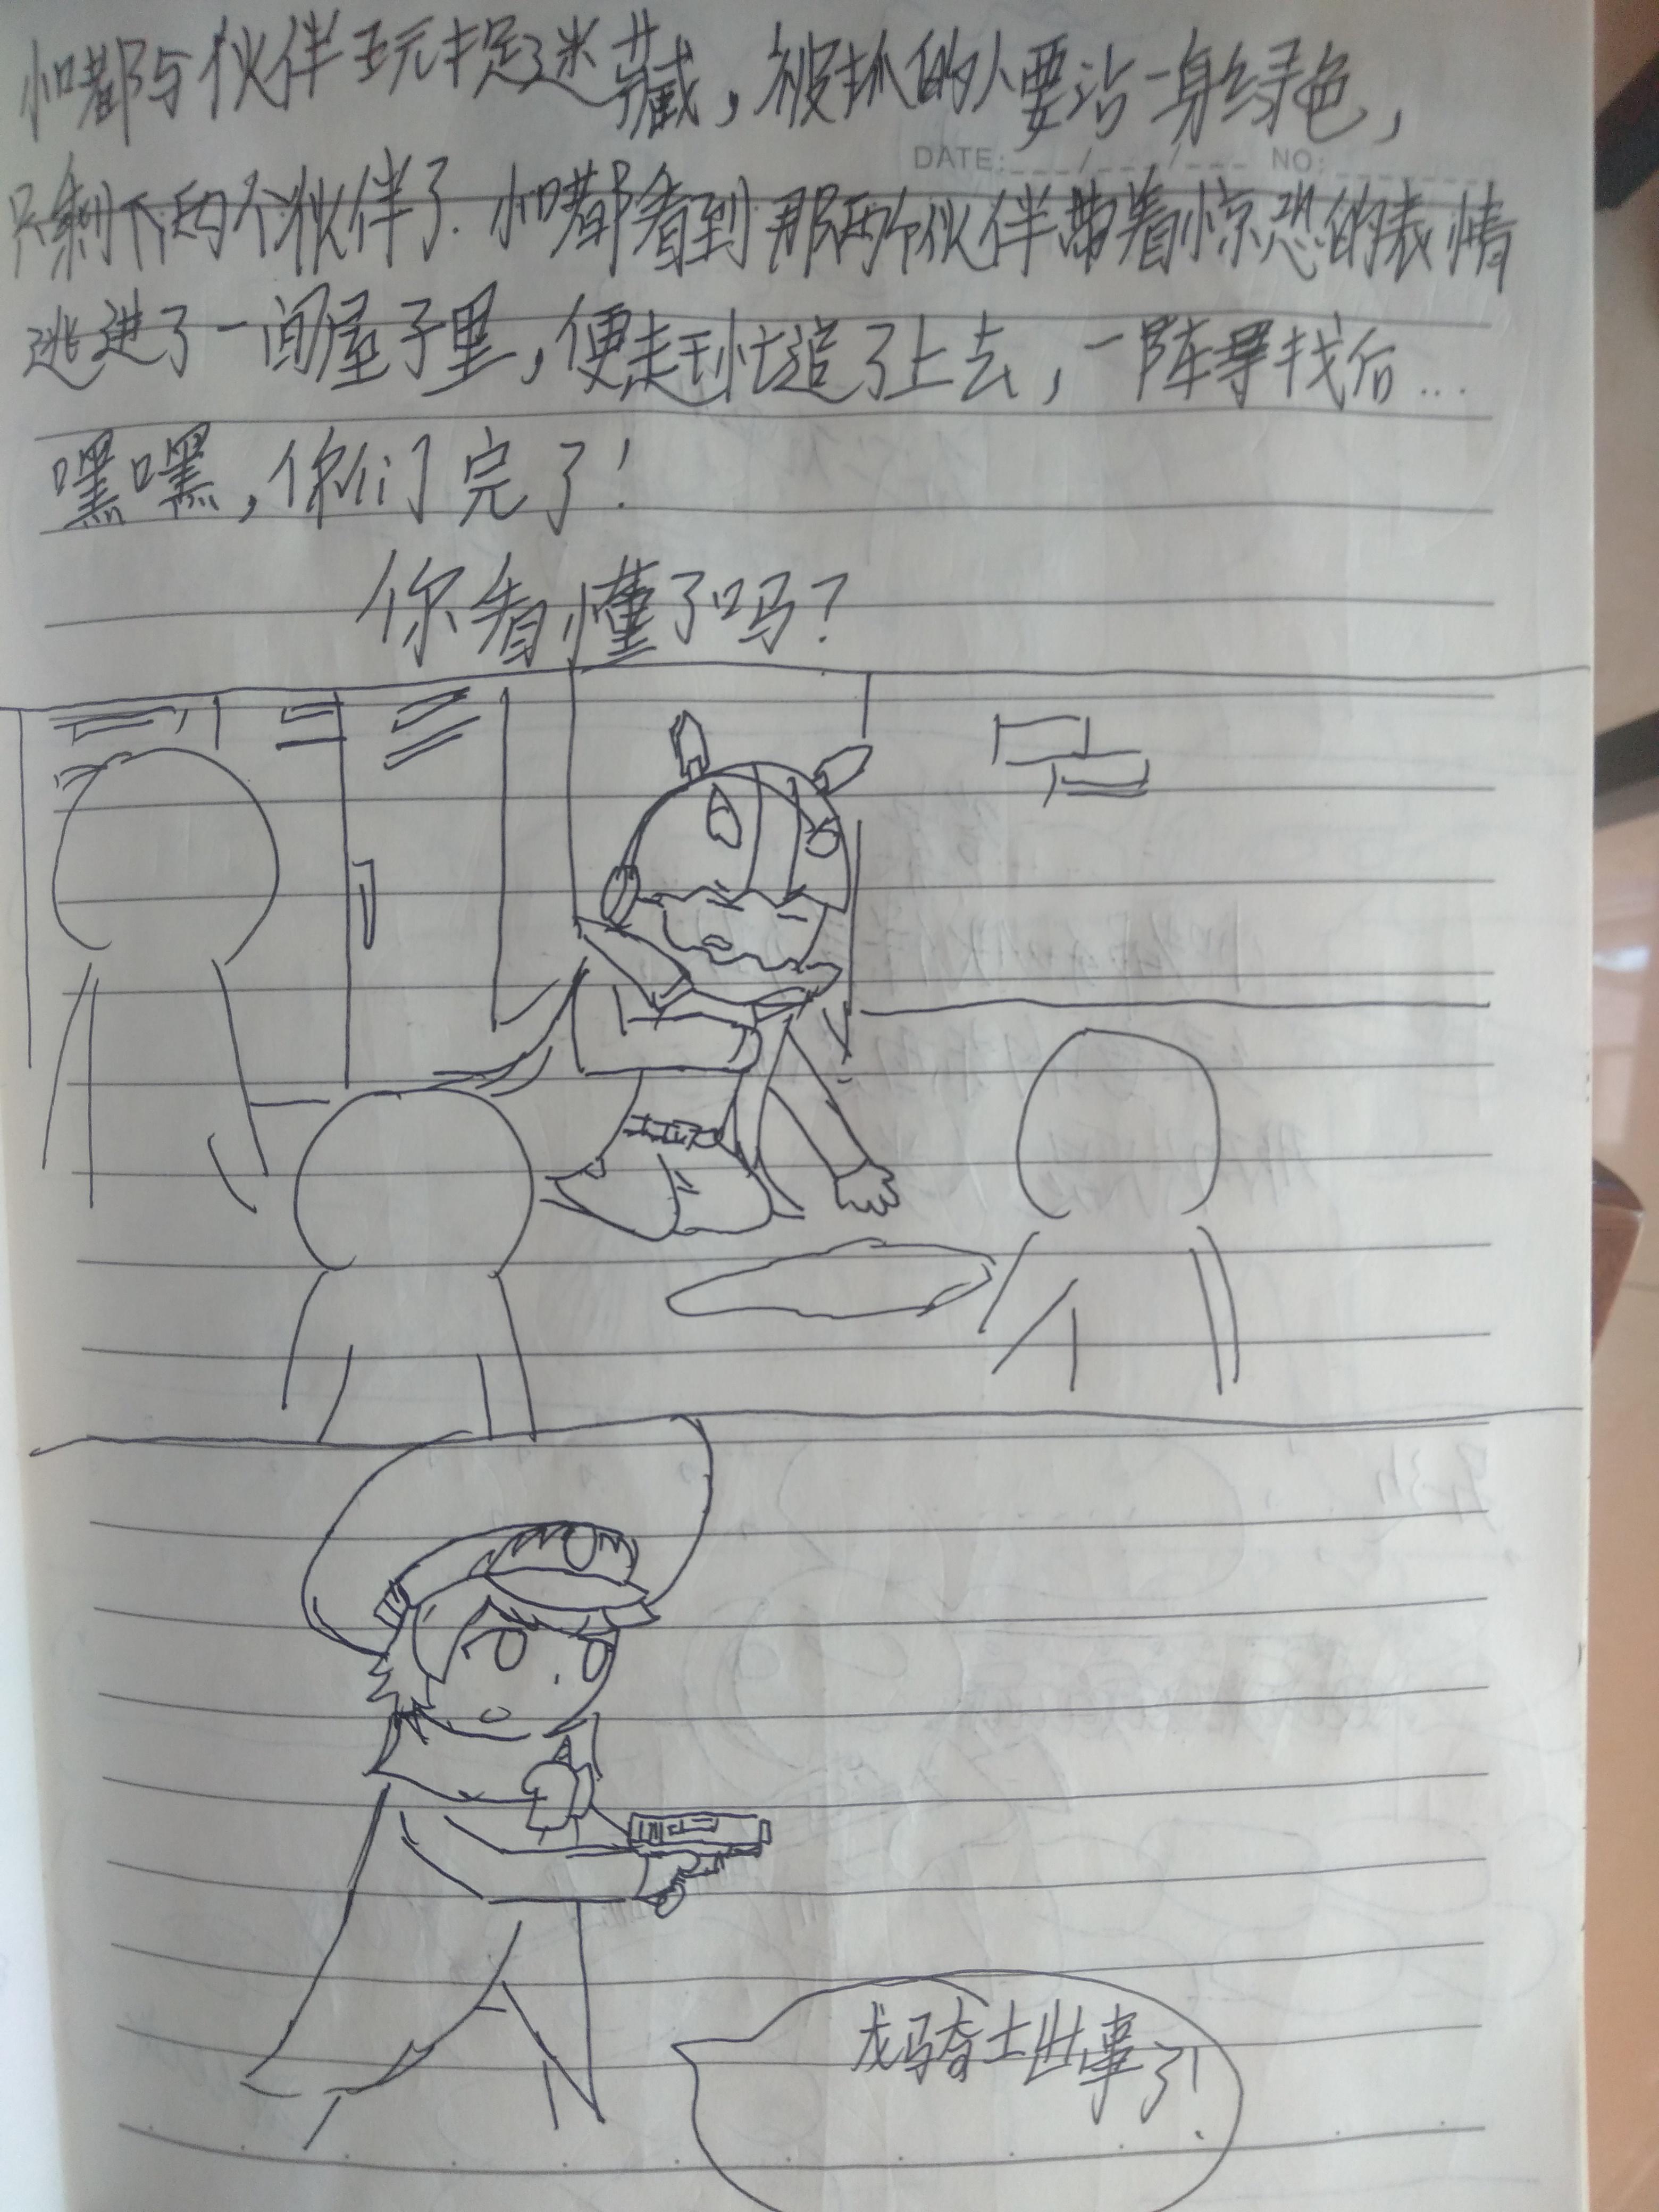 小嘟与伙伴玩捉迷藏，被抓的人要沾一身绿色，
DATE: / / NO:
只剩下两个伙伴了.小嘟看到那两个伙伴带着惊恐的表情
逃进了一间屋子里，便赶忙追了上去，一阵寻找后...
嘿嘿，你们完了！
你看懂了吗？
龙骑士出事了！